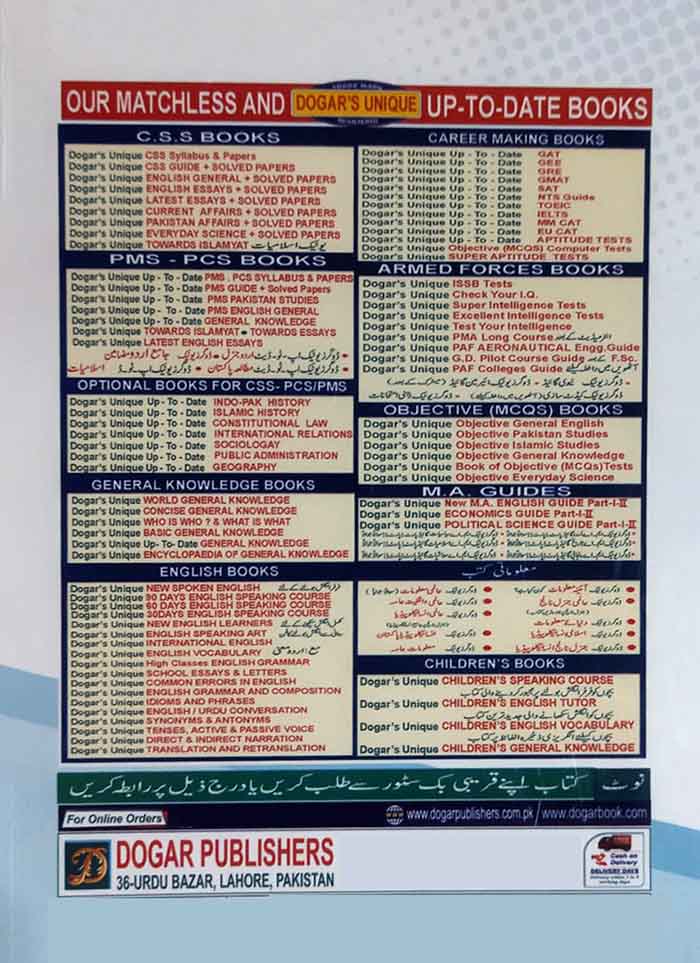 OUR MATCHLESS AND DOGAR'S UNIQUE UP-TO-DATE BOOKS
C.S.S BOOKS
Dogar's Unique CSS Syllabus & Papers
Dogar's Unique CSS GUIDE + SOLVED PAPERS
Dogar's Unique ENGLISH GENERAL + SOLVED PAPERS
Dogar's Unique ENGLISH ESSAYS + SOLVED PAPERS
Dogar's Unique LATEST ESSAYS + SOLVED PAPERS
Dogar's Unique CURRENT AFFAIRS + SOLVED PAPERS
Dogar's Unique PAKISTAN AFFAIRS + SOLVED PAPERS
Dogar's Unique EVERYDAY SCIENCE + SOLVED PAPERS
Dogar's Unique TOWARDS ISLAMYAT یونیک اسلامیات
PMS - PCS BOOKS
Dogar's Unique Up - To - Date PMS . PCS SYLLABUS & PAPERS
Dogar's Unique Up - To - Date PMS GUIDE + Solved Papers
Dogar's Unique Up - To - Date PMS PAKISTAN STUDIES
Dogar's Unique Up - To - Date PMS ENGLISH GENERAL
Dogar's Unique Up - To - Date GENERAL KNOWLEDGE
Dogar's Unique TOWARDS ISLAMYAT • TOWARDS ESSAYS
Dogar's Unique LATEST ENGLISH ESSAYS
OPTIONAL BOOKS FOR CSS- PCS/PMS
Dogar's Unique Up - To - Date INDO-PAK HISTORY
Dogar's Unique Up - To - Date ISLAMIC HISTORY
Dogar's Unique Up - To - Date CONSTITUTIONAL LAW
Dogar's Unique Up - To - Date INTERNATIONAL RELATIONS
Dogar's Unique Up - To - Date SOCIOLOGAY
Dogar's Unique Up - To - Date PUBLIC ADMINISTRATION
Dogar's Unique Up - To - Date GEOGRAPHY
GENERAL KNOWLEDGE BOOKS
Dogar's Unique WORLD GENERAL KNOWLEDGE
Dogar's Unique CONCISE GENERAL KNOWLEDGE
Dogar's Unique WHO IS WHO ? & WHAT IS WHAT
Dogar's Unique BASIC GENERAL KNOWLEDGE
Dogar's Unique Up-To-Date GENERAL KNOWLEDGE
Dogar's Unique ENCYCLOPAEDIA OF GENERAL KNOWLEDGE
ENGLISH BOOKS
Dogar's Unique NEW SPOKEN ENGLISH
Dogar's Unique 90 DAYS ENGLISH SPEAKING COURSE
Dogar's Unique 60 DAYS ENGLISH SPEAKING COURSE
Dogar's Unique 30DAYS ENGLISH SPEAKING COURSE
Dogar's Unique NEW ENGLISH LEARNERS
Dogar's Unique ENGLISH SPEAKING ART
Dogar's Unique INTERNATIONAL ENGLISH
Dogar's Unique ENGLISH VOCABULARY
Dogar's Unique High Classes ENGLISH GRAMMAR
Dogar's Unique SCHOOL ESSAYS & LETTERS
Dogar's Unique COMMON ERRORS IN ENGLISH
Dogar's Unique ENGLISH GRAMMAR AND COMPOSITION
Dogar's Unique IDIOMS AND PHRASES
Dogar's Unique ENGLISH / URDU CONVERSATION
Dogar's Unique SYNONYMS & ANTONYMS
Dogar's Unique TENSES, ACTIVE & PASSIVE VOICE
Dogar's Unique DIRECT & INDIRECT NARRATION
Dogar's Unique TRANSLATION AND RETRANSLATION
CAREER MAKING BOOKS
Dogar's Unique Up - To - Date GAT
Dogar's Unique Up - To - Date GEE
Dogar's Unique Up - To - Date GRE
Dogar's Unique Up - To - Date GMAT
Dogar's Unique Up - To - Date SAT
Dogar's Unique Up - To - Date NTS Guide
Dogar's Unique Up - To - Date TOEIC
Dogar's Unique Up - To - Date IELTS
Dogar's Unique Up - To - Date MM CAT
Dogar's Unique Up - To - Date EU CAT
Dogar's Unique Up - To - Date APTITUDE TESTS
Dogar's Unique Objective (MCQS) Computer Tests
Dogar's Unique SUPER APTITUDE TESTS
ARMED FORCES BOOKS
Dogar's Unique ISSB Tests
Dogar's Unique Check Your I.Q.
Dogar's Unique Super Intelligence Tests
Dogar's Unique Excellent Intelligence Tests
Dogar's Unique Test Your Intelligence
Dogar's Unique PMA Long Course
Dogar's Unique PAF AERONAUTICAL Engg.Guide
Dogar's Unique G.D. Pilot Course Guide بعد F.Sc.
Dogar's Unique PAF Colleges Guide
OBJECTIVE (MCQS) BOOKS
Dogar's Unique Objective General English
Dogar's Unique Objective Pakistan Studies
Dogar's Unique Objective Islamic Studies
Dogar's Unique Objective General Knowledge
Dogar's Unique Book of Objective (MCQs)Tests
Dogar's Unique Objective Everyday Science
M.A. GUIDES
Dogar's Unique New M.A. ENGLISH GUIDE Part-I-II
Dogar's Unique ECONOMICS GUIDE Part-I-II
Dogar's Unique POLITICAL SCIENCE GUIDE Part-I-II
معلوماتی کتب
CHILDREN'S BOOKS
Dogar's Unique CHILDREN'S SPEAKING COURSE
Dogar's Unique CHILDREN'S ENGLISH TUTOR
Dogar's Unique CHILDREN'S ENGLISH VOCABULARY
Dogar's Unique CHILDREN'S GENERAL KNOWLEDGE
نوٹ کتاب اپنے قریبی بک سٹور سے طلب کریں یا درج ذیل پر رابطہ کریں
For Online Orders
www.dogarpublishers.com.pk / www.dogarbook.com
DOGAR PUBLISHERS
36-URDU BAZAR, LAHORE, PAKISTAN
Cash on
Delivery
DELIVERY DAYS